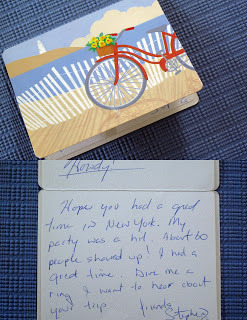 Howdy!
Hope you had a great
time in New York. My
party was a hit. About 60
people showed up! I had a
great time. Give me a
ring I want to hear about
your trip.